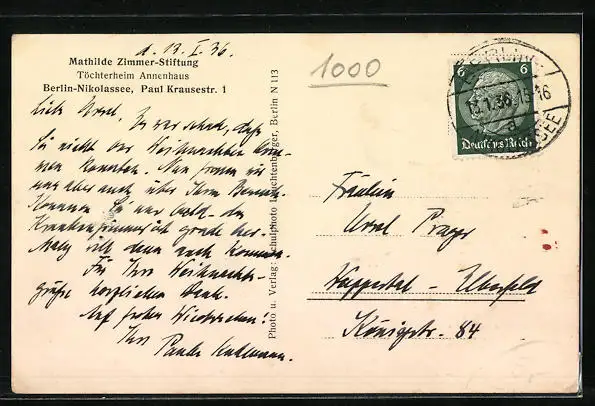 d. 13. I. 36.
Mathilde Zimmer-Stiftung
Töchterheim Annenhaus
Berlin-Nikolassee, Paul Krausestr. 1
Liebe Ursel, Es war schade, daß
Sie nicht vor Weihnachten kom-
men konnten. Nun freuen wir
uns aber auch über Ihren
Kommen Sie nur bald – das
Krankenzimmer ist grade
ist dann auch
Für Ihre Weihnachts-
grüße herzlichen Dank.
Auf frohes Wiedersehen!
Ihre Paula
Photo u. Verlag: Schulphoto Leuchtenberger, Berlin N 113
1000
6 6
Deutsches Reich
BERLIN-
13.1.36.15-16
a
SEE
Fräulein
Ursel Prager
Wuppertal-Elberfeld
Königstr. 84